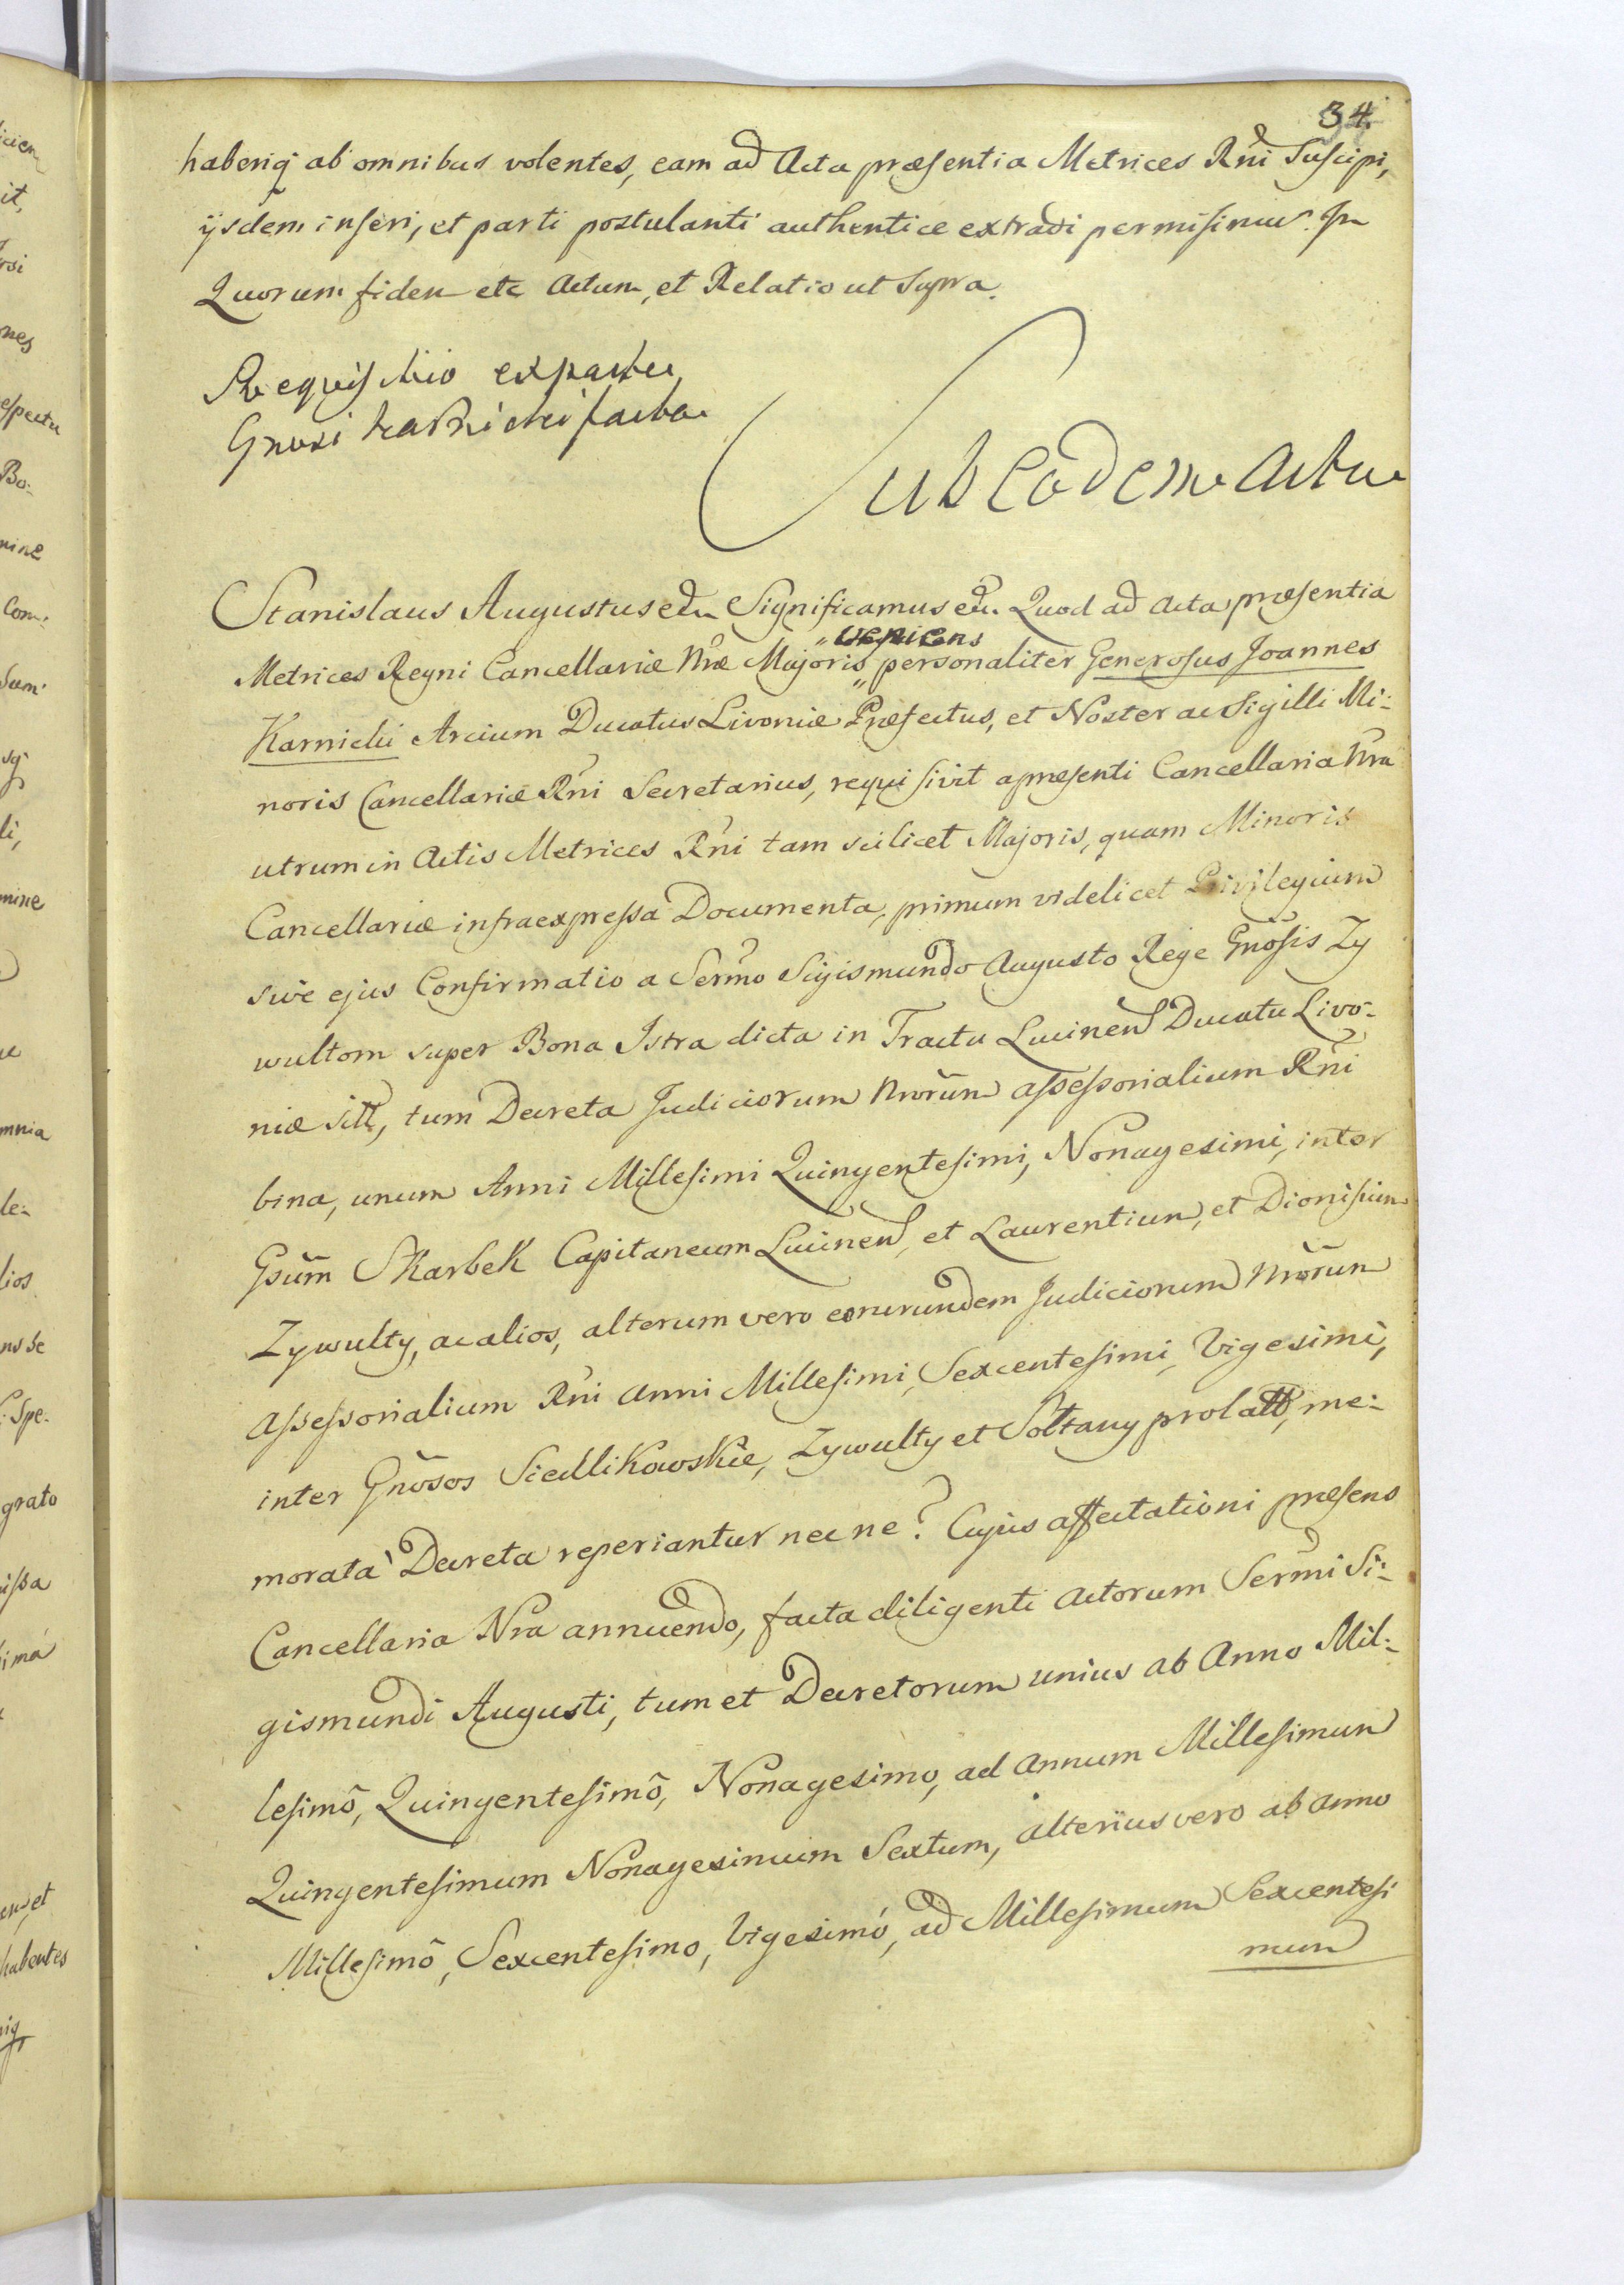 34.
haberiq ab omnibus volentes, eam ad Acta præsentia Metrices Rñi Suscipi,
ijsdem inseri, et parti postulanti authentice extradi permisimus. In
Quorum fidem etc Actum, et Relatio ut Supra.
Requisitio ex parte
Gnosi Karnicki facta
Sub eodem Actu
Stanislaus Augustus etc Significamus etc. Quod ad Acta præsentia
veniens
Metrices Regni Cancellariæ Nræ Majoris personaliter Generosus Joannes
Karnicki Arcium Ducatus Livoniæ Præfectus, et Noster ac Sigilli Mi-
noris Cancellariæ Rñi Secretarius, requisivit a præsenti Cancellaria Nra
utrum in Actis Metrices Rñi tam scilicet Majoris, quam Minoris
Cancellariæ infraexpressa Documenta, primum videlicet Privilegium
sive ejus Confirmatio a Sermo Sigismundo Augusto Rege Gnõsis Zy
wultom super Bona Istra dicta in Tractu Lucinen Ducatu Livo-
niæ sitt, tum Decreta Judiciorum Nrorum assessorialium Rñi
bina, unum Anni Millesimi Quingentesimi, Nonagesimi, inter
Gsum Skarbek Capitaneum Lucinen, et Laurentium, et Dionisium
Zywulty, ac alios, alterum vero eorurundem Judiciorum Nrorum
Assessorialium Rñi Anni Millesimi, Sexcentesimi, Vigesimi,
inter Gnõsos Siedlikowskie, Zywulty et Sołtany prolatt, me-
morata Decreta reperiantur nec ne? Cujus affectationi præsens
Cancellaria Nra annuendo, facta diligenti Actorum Sermi Si-
gismundi Augusti, tum et Decretorum unius ab Anno Mil-
lesimõ, Quingentesimõ, Nonagesimo, ad Annum Millesimum
Quingentesimum Nonagesimum Sextum, alterius vero ab Anno
Millesimõ, Sexcentesimo, Vigesimó, ad Millesimum Sexcentesi
mum